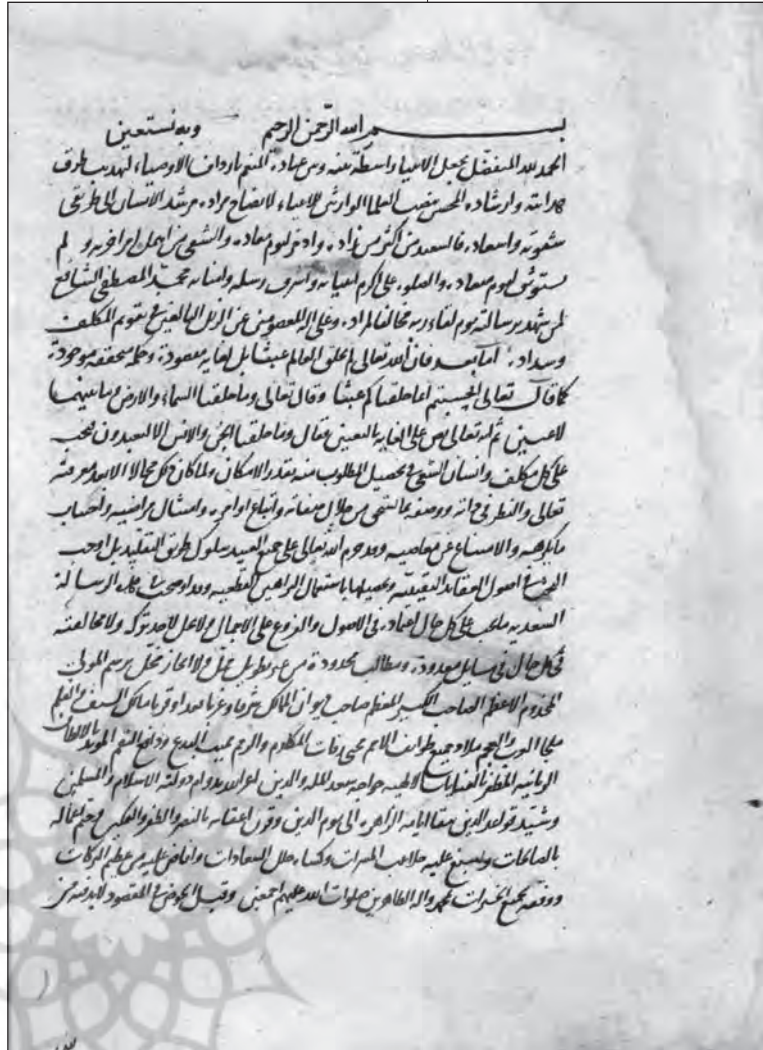 بسم الله الرحمن الرحيم وبه نستعين
الحمد لله المتفضل بجعل الانبياء واسطة بينه وبين عباده المنعم بارداف الاوصياء لتهذيب طرق
هدايته وارشاده المحسن بنصب العلماء الوارثين للانبياء لايضاح مراده مرشد الانسان الى طريقي
شقوته واسعاده فالسعيد من اكثر من زاده وادخر ليوم معاده والشقي من اهمل امر اخرته ولم
يستوثق ليوم معاده والصلوة على اكرم انبيائه واشرف رسله وامنائه محمد المصطفى الشافع
لمن شهد برسالته يوم لقاء ربه مخالفا لمراده وعلى اله المعصومين عن الزلل البالغين في تقويم المكلف
وسداده اما بعد فان الله تعالى لم يخلق العالم عبثا بل لغاية مقصودة وحكمة محققة موجودة
كما قال تعالى افحسبتم انما خلقناكم عبثا وقال تعالى وما خلقنا السماء والارض وما بينهما
لاعبين ثم انه تعالى نص على الغاية بالتعيين فقال وما خلقنا الجن والانس الا ليعبدون فيجب
على كل مكلف وانسان السعي في تحصيل المطلوب منه بقدر الامكان ولما كان ذلك محالا الا بعد معرفته
تعالى والنظر في ذاته ووصفه بما يستحق من جلال صفاته واتباع اوامره وامتثال مراضيه واجتناب
ما يكرهه والامتناع عن معاصيه وقد حرم الله تعالى على جميع العبيد سلوك طريق التقليد بل اوجب
البحث في اصول العقائد اليقينية وتحصيلها باستعمال البراهين القطعية وقد اوضحت في هذه الرسالة
السعدية ما يجب على كل حال اعتماده في الاصول والفروع على الاجمال ولا يحل لاحد تركه ولا مخالفته
في كل حال في مسايل معدودة ومطالب محدودة من غير تطويل ممل ولا ايجاز مخل برسم المولى
المخدوم الاعظم الصاحب الكبير المعظم صاحب ديوان الممالك شرقا وغربا بعدا وقربا مالك السيف والقلم
ملجا العرب والعجم ملاذ جميع طوائف الامم محيي رفات المكارم والرمم مميت البدع ودافع النقم المويد بالالطاف
الربانية المظفر بالعنايات الالهية خواجه سعد الملة والدين اعز الله بدوام دولته الاسلام والمسلمين
وشيد قواعد الدين ببقا ايامه الزاهره الى يوم الدين وقرن اعقابه بالنصر والظفر والتمكين وختم اعماله
بالصالحات واسبغ عليه جلابيب المسرات وكساه حلل السعادات وافاض عليه من عظيم البركات
ووفقه لجميع الخيرات بمحمد واله الطاهرين صلوات الله عليهم اجمعين وقبل الخوض في المقصود لا بد من